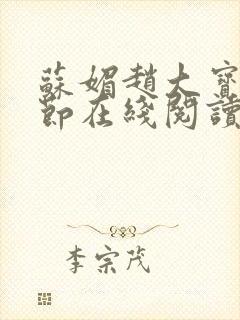 蘇媚趙大寶
節在綫閱讀
李宗茂